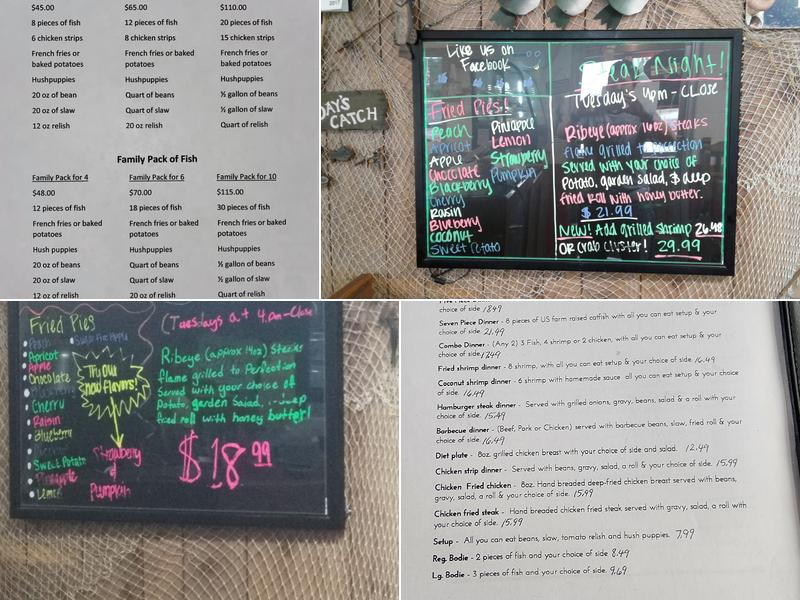 $45.00 $65.00 $110.00
8 pieces of fish 12 pieces of fish 20 pieces of fish
6 chicken strips 8 chicken strips 15 chicken strips
French fries or baked potatoes French fries or baked potatoes French fries or baked potatoes
Hushpuppies Hushpuppies Hushpuppies
20 oz of bean Quart of beans ½ gallon of beans
20 oz of slaw Quart of slaw ½ gallon of slaw
12 oz relish 20 oz relish Quart of relish
Family Pack of Fish
Family Pack for 4 Family Pack for 6 Family Pack for 10
$48.00 $70.00 $115.00
12 pieces of fish 18 pieces of fish 30 pieces of fish
French fries or baked potatoes French fries or baked potatoes French fries or baked potatoes
Hush puppies Hushpuppies Hushpuppies
20 oz of beans Quart of beans ½ gallon of beans
20 oz of slaw Quart of slaw ½ gallon of slaw
12 oz of relish 20 oz of relish Quart of relish
2017
DAY'S
CATCH
Like us on
Facebook
Fried Pies!
Peach Pineapple
Apricot Lemon
Apple Strawberry
Chocolate Pumpkin
Blackberry
Cherry
Raisin
Blueberry
Coconut
Sweet Potato
Steak Night!
Tuesday's 4pm - Close
Ribeye (approx 14oz) steaks
flame grilled to perfection
Served with your choice of
Potato, garden salad, & deep
fried roll with honey butter.
$21.99
New! Add grilled shrimp 26.48
OR Crab Cluster! 29.99
Fried Pies
Peach
Apricot
Apple
Chocolate
Cherry
Raisin
Blueberry
Sweet Potato
Pineapple
Lemon
Try our
new flavors!
Strawberry
&
Pumpkin
(Tuesdays at 4pm-Close
Ribeye (approx 14oz) Steaks
flame grilled to Perfection
Served with your choice of
Potato, garden Salad, deep
fried roll with honey butter!
$18.99
choice of side. 18.49
Seven Piece Dinner - 8 pieces of US farm raised catfish with all you can eat setup & your
choice of side. 21.99
Combo Dinner - (Any 2) 3 Fish, 4 shrimp or 2 chicken, with all you can eat setup & your
choice of side. 17.49
Fried shrimp dinner - 8 shrimp, with all you can eat setup & your choice of side. 16.49
Coconut shrimp dinner - 6 shrimp with homemade sauce all you can eat setup & your choice
of side. 16.49
Hamburger steak dinner - Served with grilled onions, gravy, beans, salad & a roll with your
choice of side. 15.49
Barbecue dinner - (Beef, Pork or Chicken) served with barbecue beans, slaw, fried roll & your
choice of side. 16.49
Diet plate - 8oz. grilled chicken breast with your choice of side and salad. 12.49
Chicken strip dinner - Served with beans, gravy, salad, a roll & your choice of side. 15.99
Chicken Fried chicken - 8oz. Hand breaded deep-fried chicken breast served with beans,
gravy, salad, a roll & your choice of side. 15.99
Chicken fried steak - Hand breaded chicken fried steak served with gravy, salad, a roll with
your choice of side. 15.99
Setup - All you can eat beans, slaw, tomato relish and hush puppies. 7.99
Reg. Bodie - 2 pieces of fish and your choice of side 8.49
Lg. Bodie - 3 pieces of fish and your choice of side. 9.69